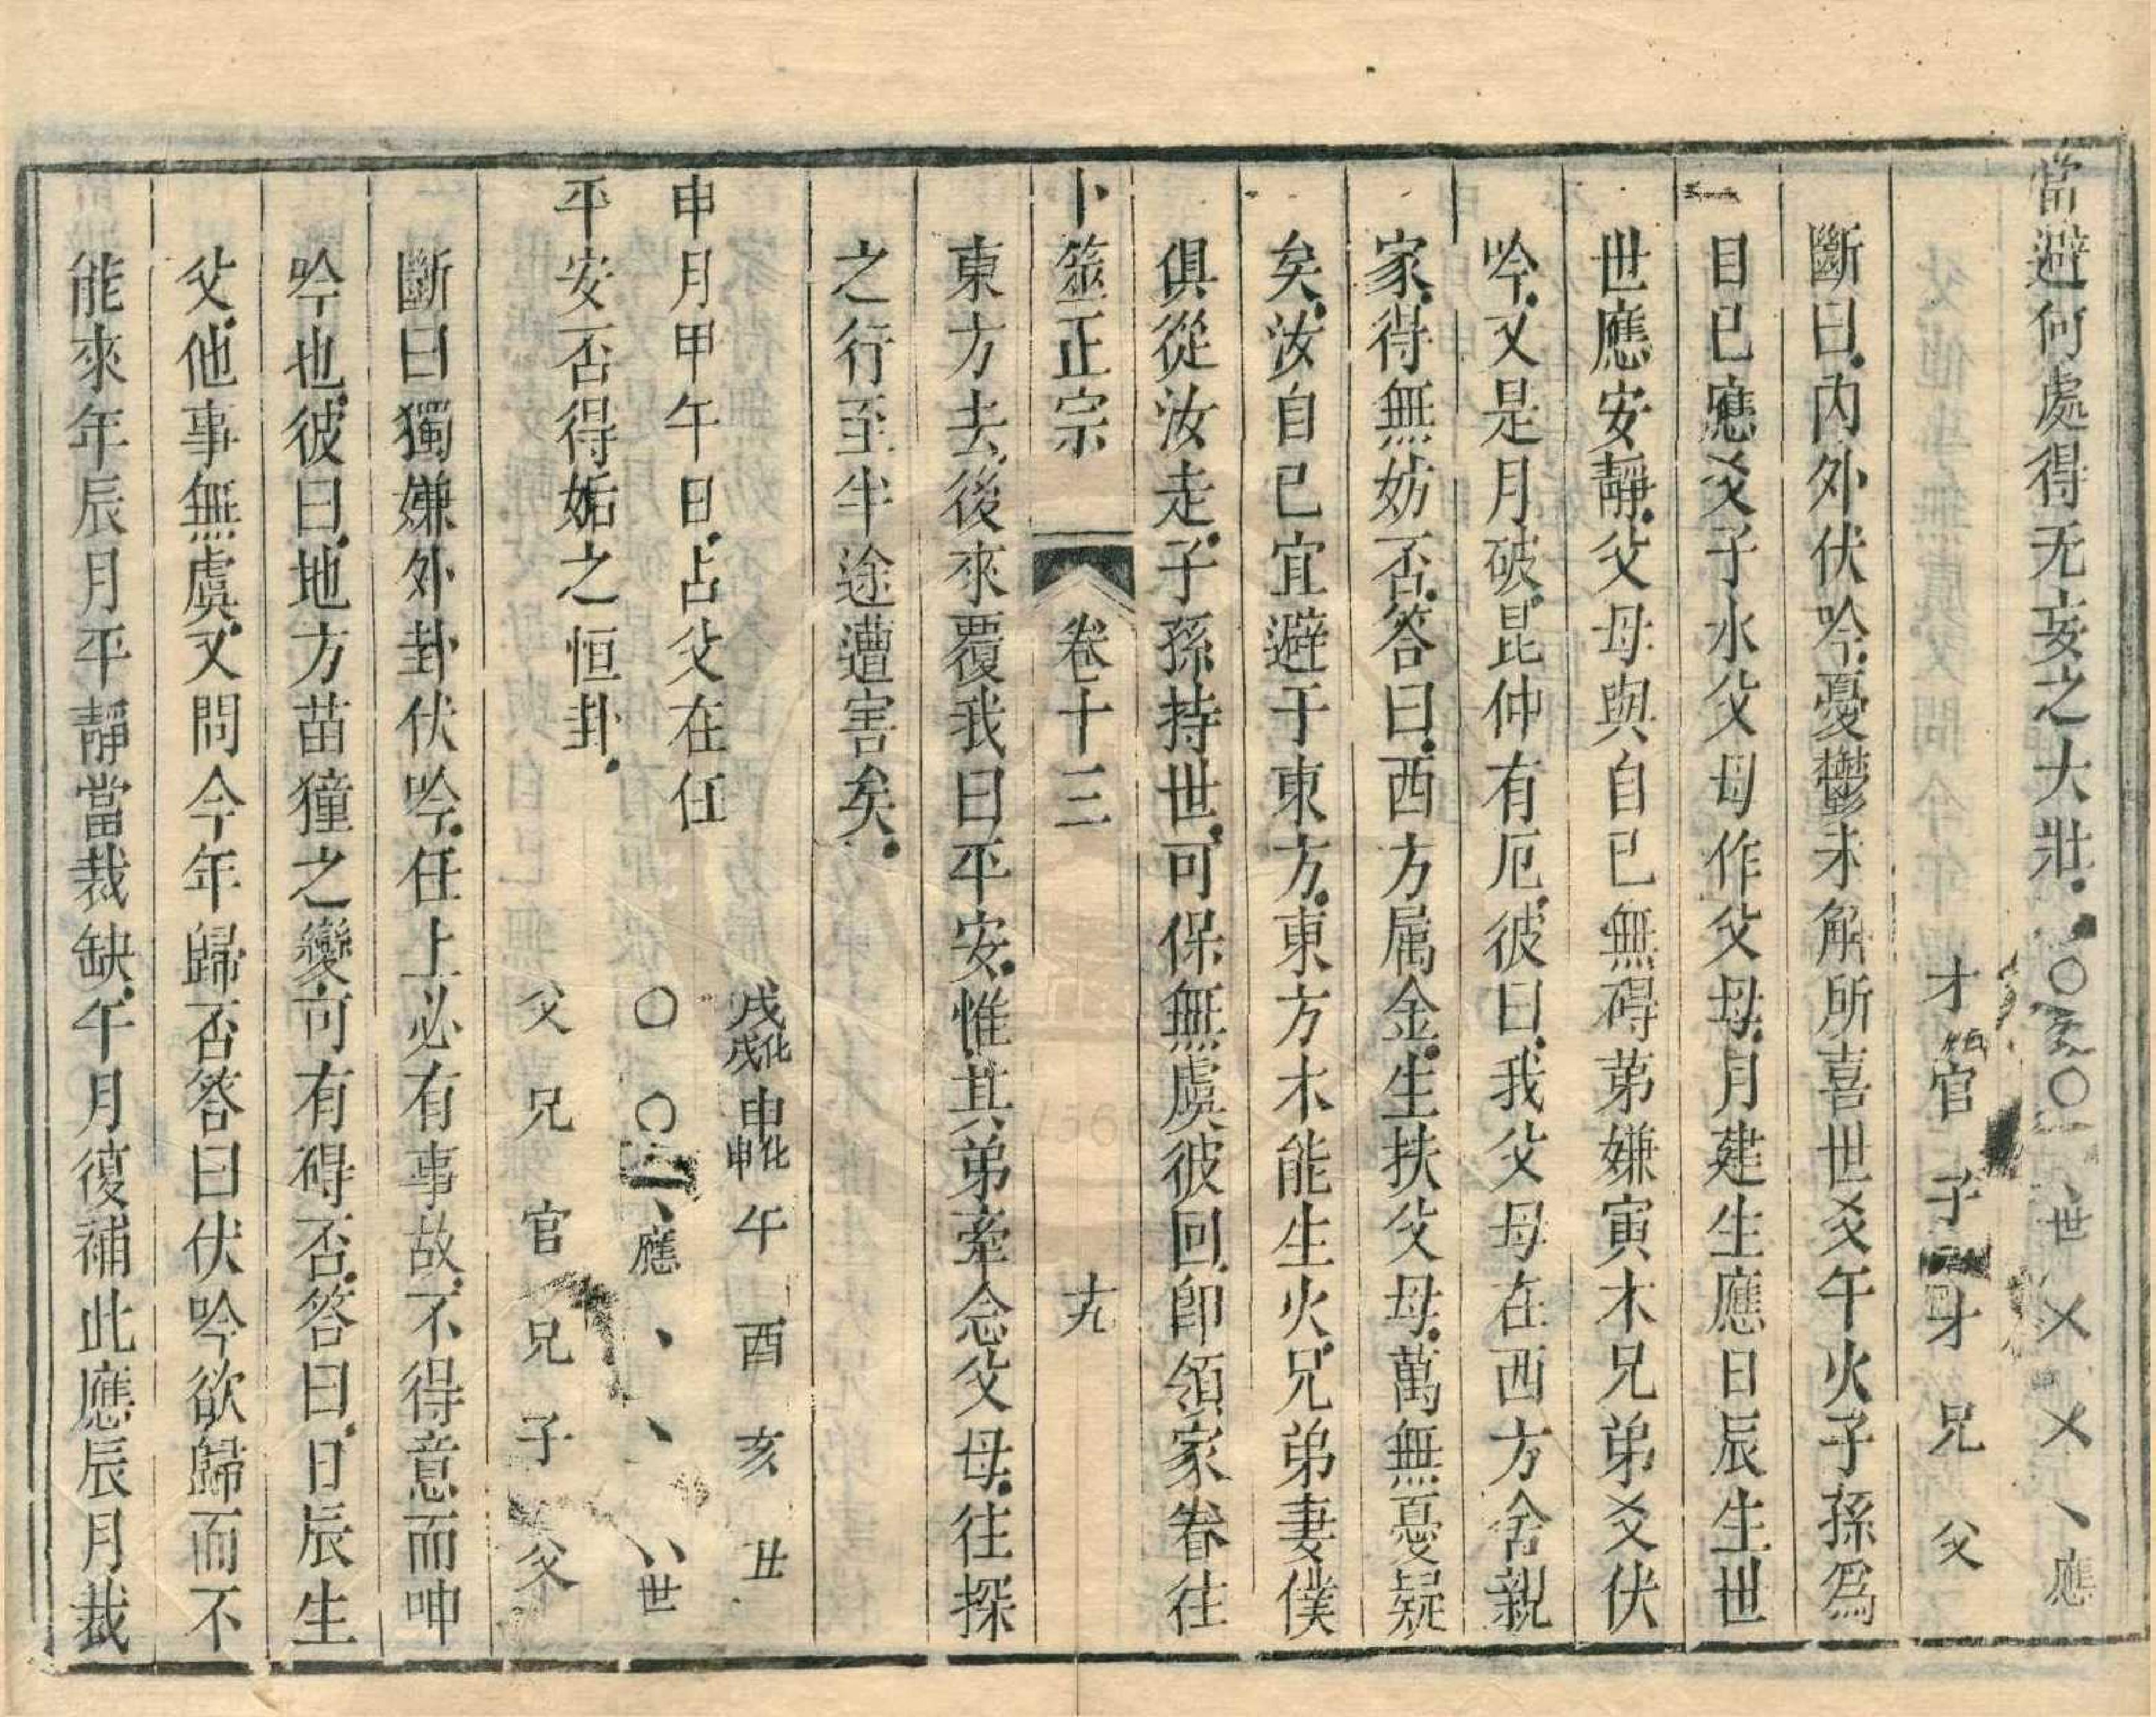 當避何處得无妄之大壯
世 應
才 官 子 才 兄 父
斷曰內外伏吟憂鬱未解所喜世爻午火子孫爲
目已應爻子水父母作父母月建生應日辰生世
世應安靜父母與自已無碍弟嫌寅木兄弟爻伏
吟又是月破昆仲有厄彼曰我父母在西方舍親
家得無妨否答曰西方属金生扶父母萬無憂疑
矣汝自已宜避于東方東方木能生火兄弟妻僕
俱從汝走子孫持世可保無虞彼回卽領家眷往
卜筮正宗 卷十三 九
東方去後來覆我曰平安惟其弟牽念父母往探
之行至半途遭害矣
申月甲午日占父在任
平安否得姤之恒卦
戌化戌 申化申 午 酉 亥 丑
應 世
父 兄 官 兄 子 父
斷曰獨嫌外卦伏吟任上必有事故不得意而呻
吟也彼曰地方苗獞之變可有碍否答曰日辰生
父他事無虞又問今年歸否答曰伏吟欲歸而不
能來年辰月平靜當裁缺午月復補此應辰月裁